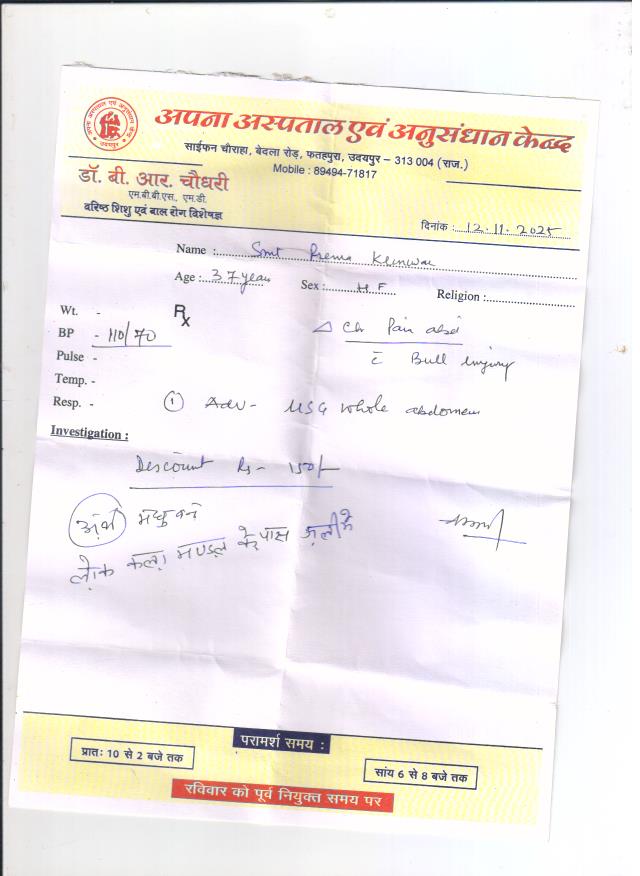 अपना अस्पताल एवं अनुसंधान केन्द्र
साईफन चौराहा, बेदला रोड़, फतहपुरा, उदयपुर – 313 004 (राज.)
Mobile : 89494-71817
डॉ. बी. आर. चौधरी
एम.बी.बी.एस., एम.डी.
वरिष्ठ शिशु एवं बाल रोग विशेषज्ञ
दिनांक : 12.11.2025
Name : Smt Prema Kunwar
Age : 37 year Sex : F Religion :
Wt. - Rx
Δ Ch Pain abd
BP - 110/70
c̄ Bull injury
Pulse -
Temp. -
Resp. - ① Adv - USG whole abdomen
Investigation :
Discount Rs - 150/-
मधुबन
लोक कला मण्डल के पास गली में
परामर्श समय :
प्रातः 10 से 2 बजे तक
सांय 6 से 8 बजे तक
रविवार को पूर्व नियुक्त समय पर